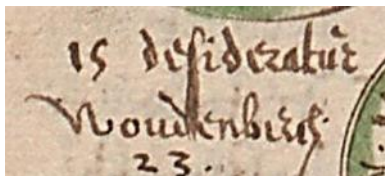 15 desideratur
Woudenberch
23.